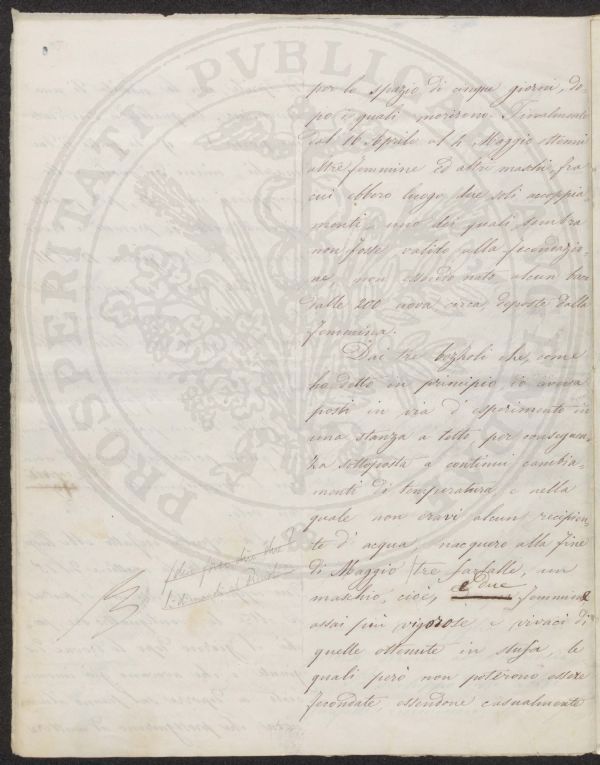 per lo spazio di cinque giorni, do-
po i quali morirono. Finalmente
dal 16 Aprile al 4 Maggio ottenni
altre femmine ed altri maschi, fra
cui ebbero luogo due soli accoppia-
menti, uno dei quali sembra
non fosse valido alla fecondazio-
ne, non essendo nato alcun baco
dalle 200 uova circa, deposte dalla
femmina.
Dai tre bozzoli che, come
ho detto in principio io aveva
posti in via d'esperimento in
una stanza a tetto per conseguen-
za sottoposta a continui cambia-
menti di temperatura, e nella
quale non eravi alcun recipien-
te d'acqua, nacquero alla fine
di Maggio tre farfalle, un
maschio, cioè, e due femmine
assai più vigorose e vivaci di
quelle ottenute in stufa, le
quali però non poterono essere
fecondate, essendone casualmente
PROSPERITATI PVBLICAE